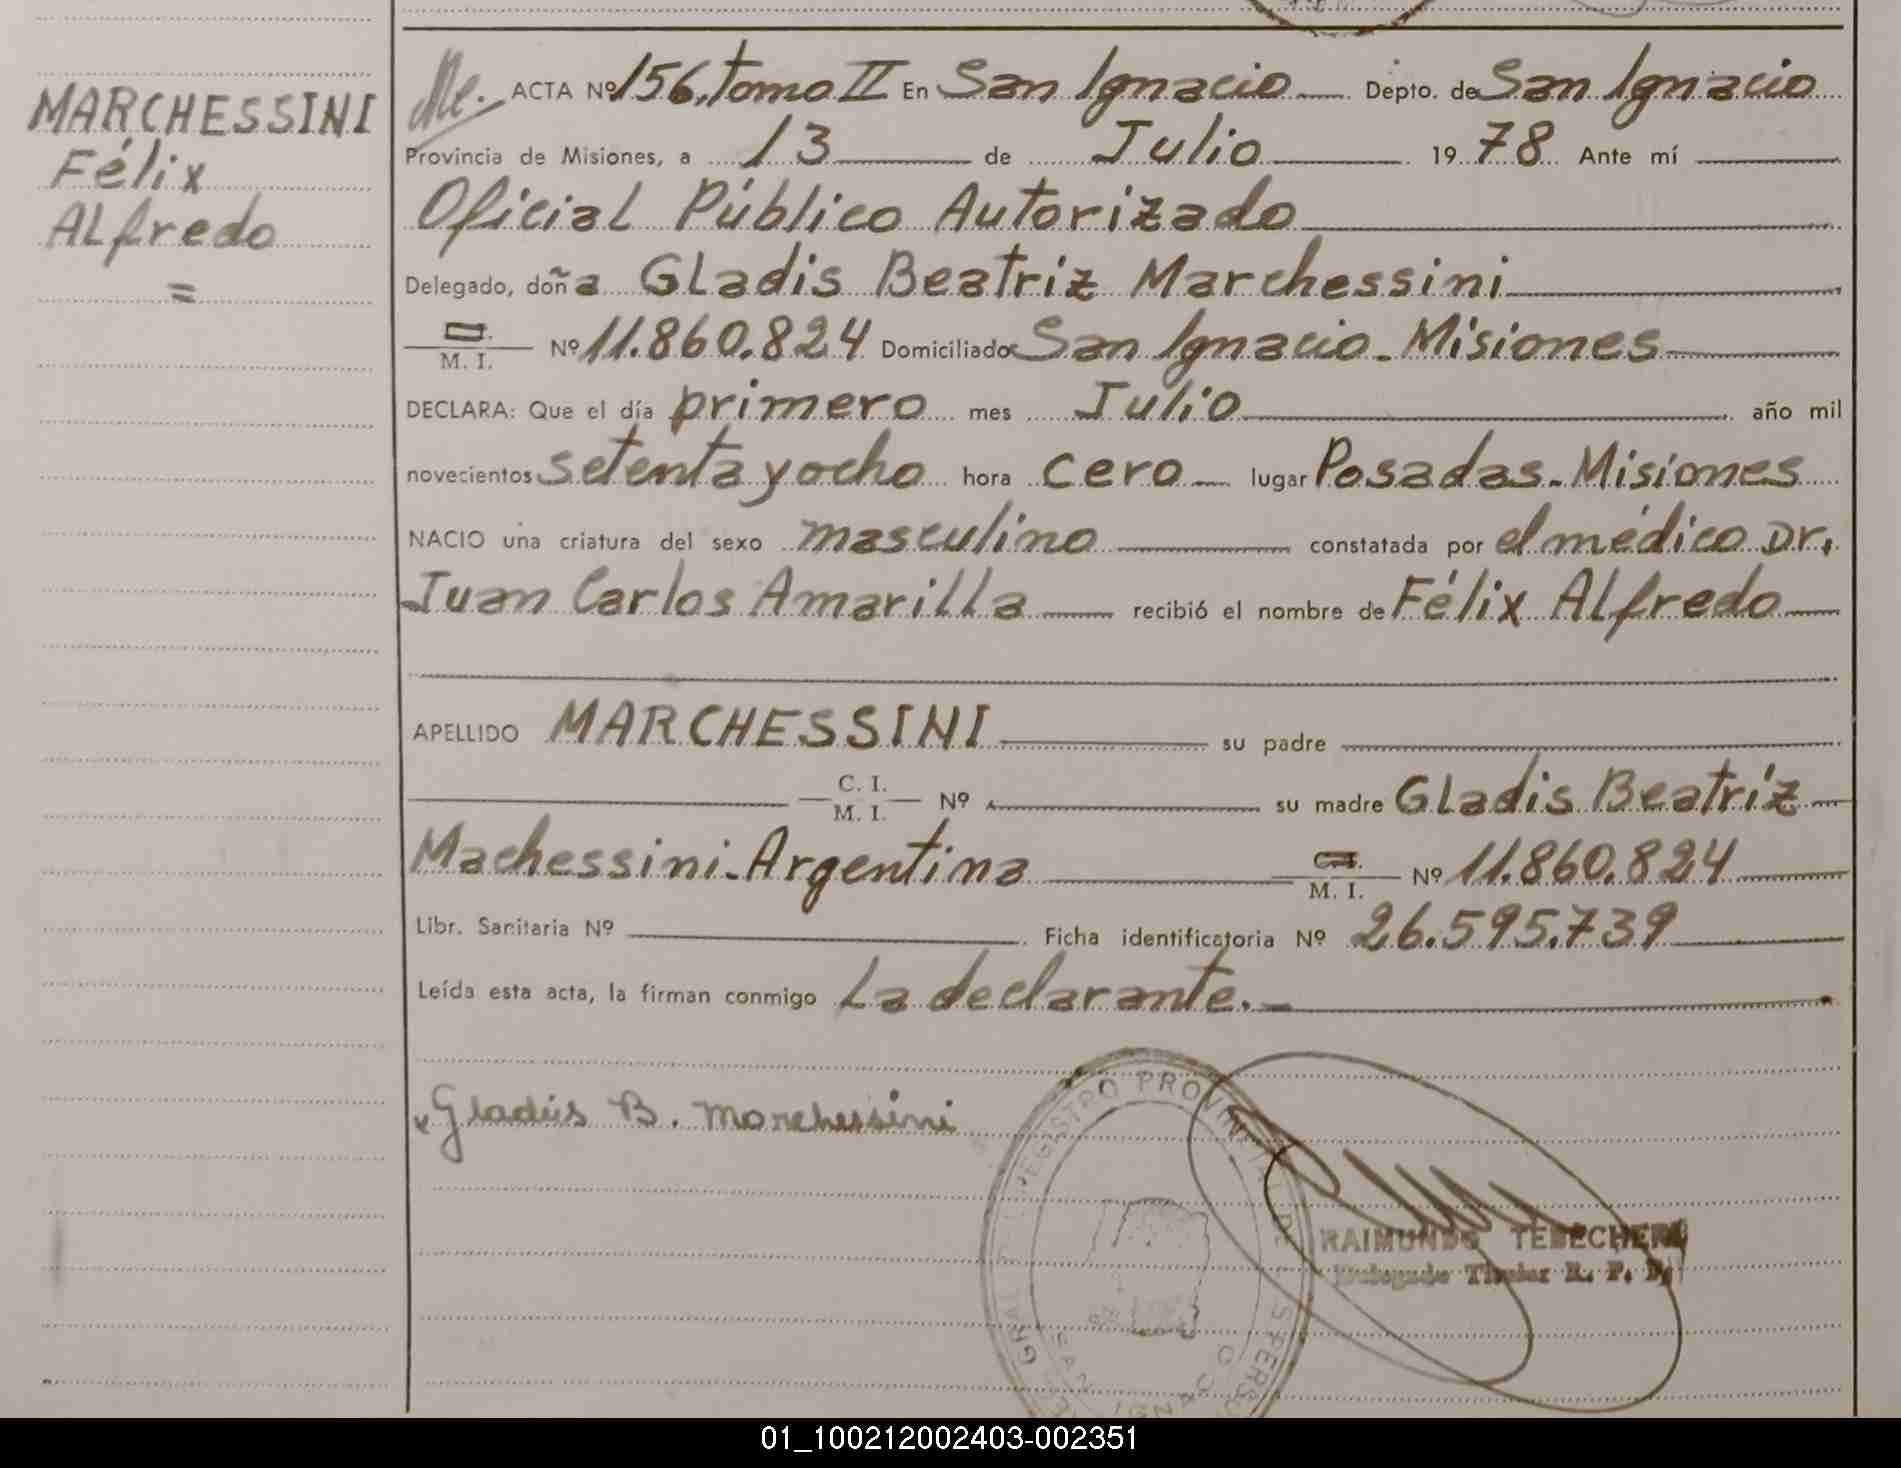 MARCHESSINI
Félix
ALfredo
=
ACTA Nº 156, tomo II En San Ignacio Depto. de San Ignacio
Provincia de Misiones, a 13 de Julio 1978 Ante mí
Oficial Público Autorizado
Delegado, doña Gladis Beatriz Marchessini
M. I. Nº 11.860.824 Domiciliado San Ignacio - Misiones
DECLARA: Que el día primero mes Julio año mil
novecientos setenta y ocho hora cero lugar Posadas - Misiones
NACIO una criatura del sexo masculino constatada por el médico Dr.
Juan Carlos Amarilla recibió el nombre de Félix Alfredo
APELLIDO MARCHESSINI su padre
C. I.
M. I. Nº su madre Gladis Beatriz
Machessini - Argentina C. I.
M. I. Nº 11.860.824
Libr. Sanitaria Nº Ficha identificatoria Nº 26.595.739
Leída esta acta, la firman conmigo La declarante. -
Gladis B. Marchessini
REGISTRO PROVINCIAL DE
SAN IGNACIO
RAIMUNDO
Delegado Titular R. P. P.
01_100212002403-002351